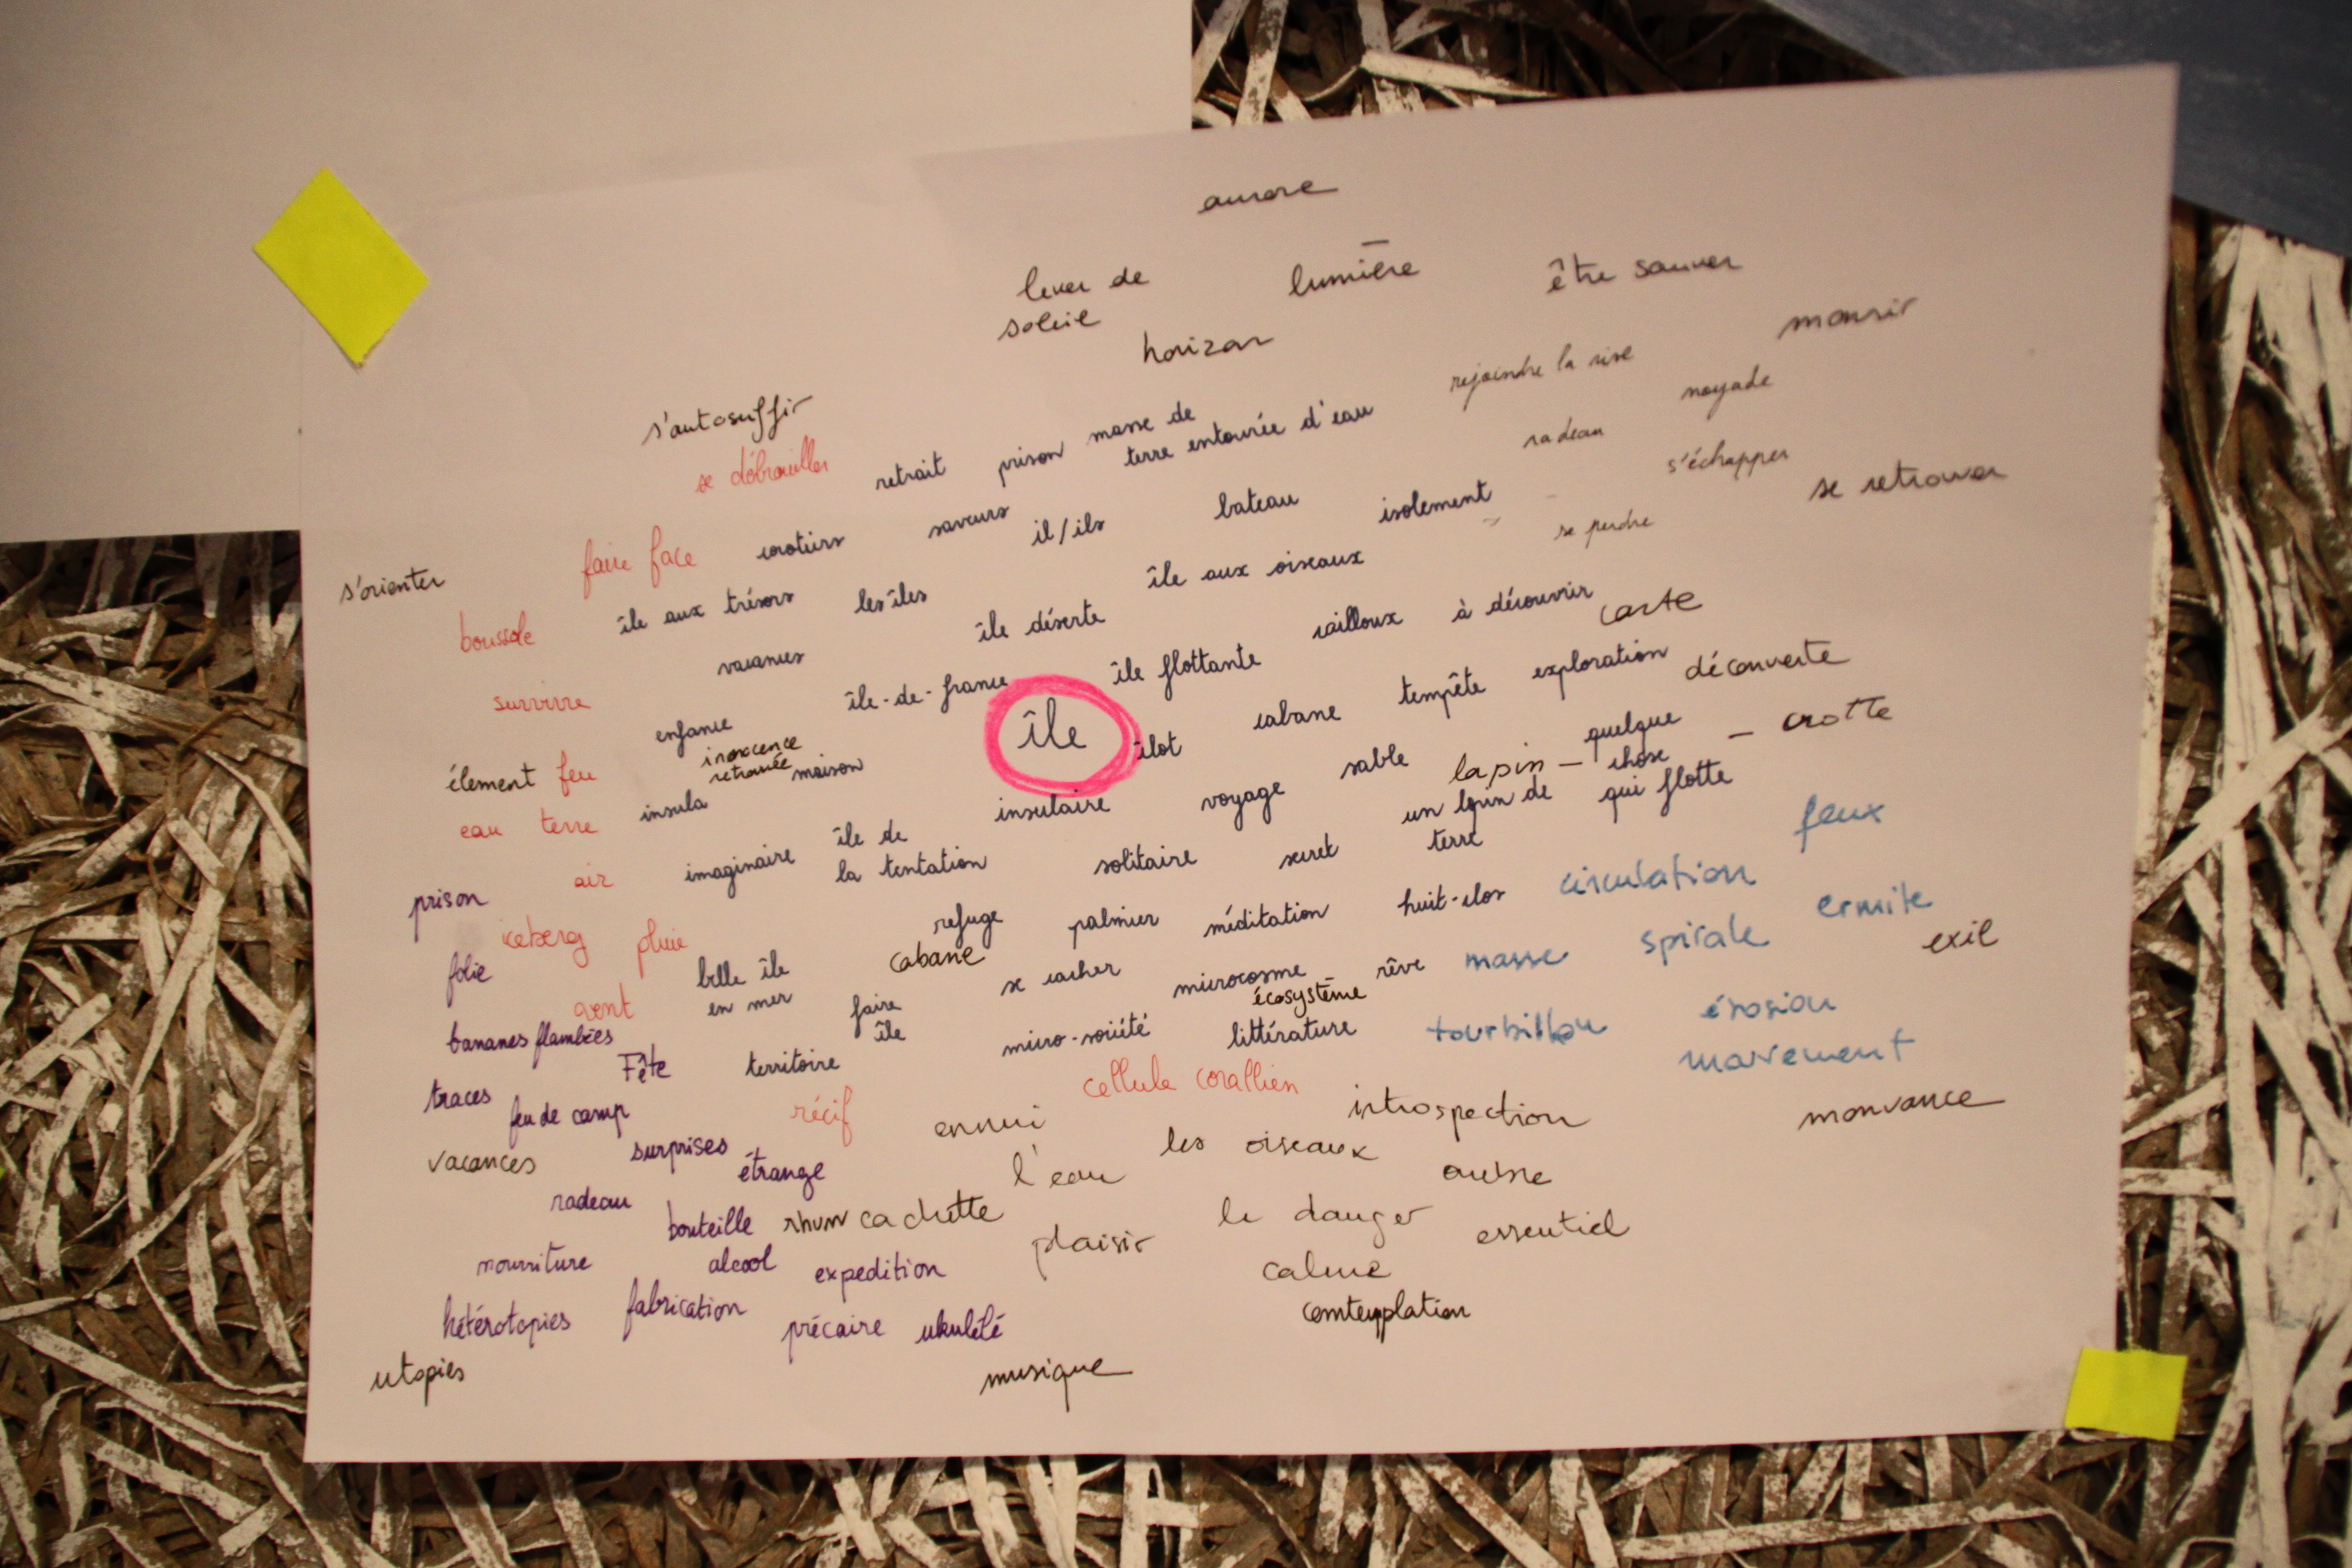 aurore
lever de
soleil
lumière
être sauver
horizon
mourir
s'autosuffir
se débrouiller
retrait
prison
masse de
terre entourée d'eau
rejoindre la rive
noyade
radeau
s'échapper
se retrouver
s'orienter
faire face
saveurs
il/ils
bateau
isolement
se perdre
boussole
île aux trésors
les îles
île déserte
île aux oiseaux
cailloux
à découvrir
carte
survivre
vacances
île-de-france
île flottante
tempête
exploration
découverte
enfance
innocence
retrouvée
maison
île
îlot
cabane
sable
lapin —
quelque
chose
qui flotte
— crotte
élement feu
eau
terre
insula
insulaire
voyage
un lopin de
terre
feux
prison
air
imaginaire
île de
la tentation
solitaire
secret
circulation
ermite
iceberg
pluie
refuge
palmier
méditation
huit-clos
spirale
exil
folie
vent
belle île
en mer
cabane
faire
île
se cacher
microcosme
écosystème
rêve
masse
érosion
bananes flambées
Fête
territoire
micro-société
littérature
tourbillon
mouvement
traces
feu de camp
récif
ennui
cellule corallien
introspection
mouvance
vacances
surprises
étrange
l'eau
les oiseaux
radeau
bouteille
rhum
cachette
plaisir
le danger
essentiel
nourriture
alcool
expedition
calme
hétérotopies
fabrication
précaire
ukulélé
contemplation
utopies
musique